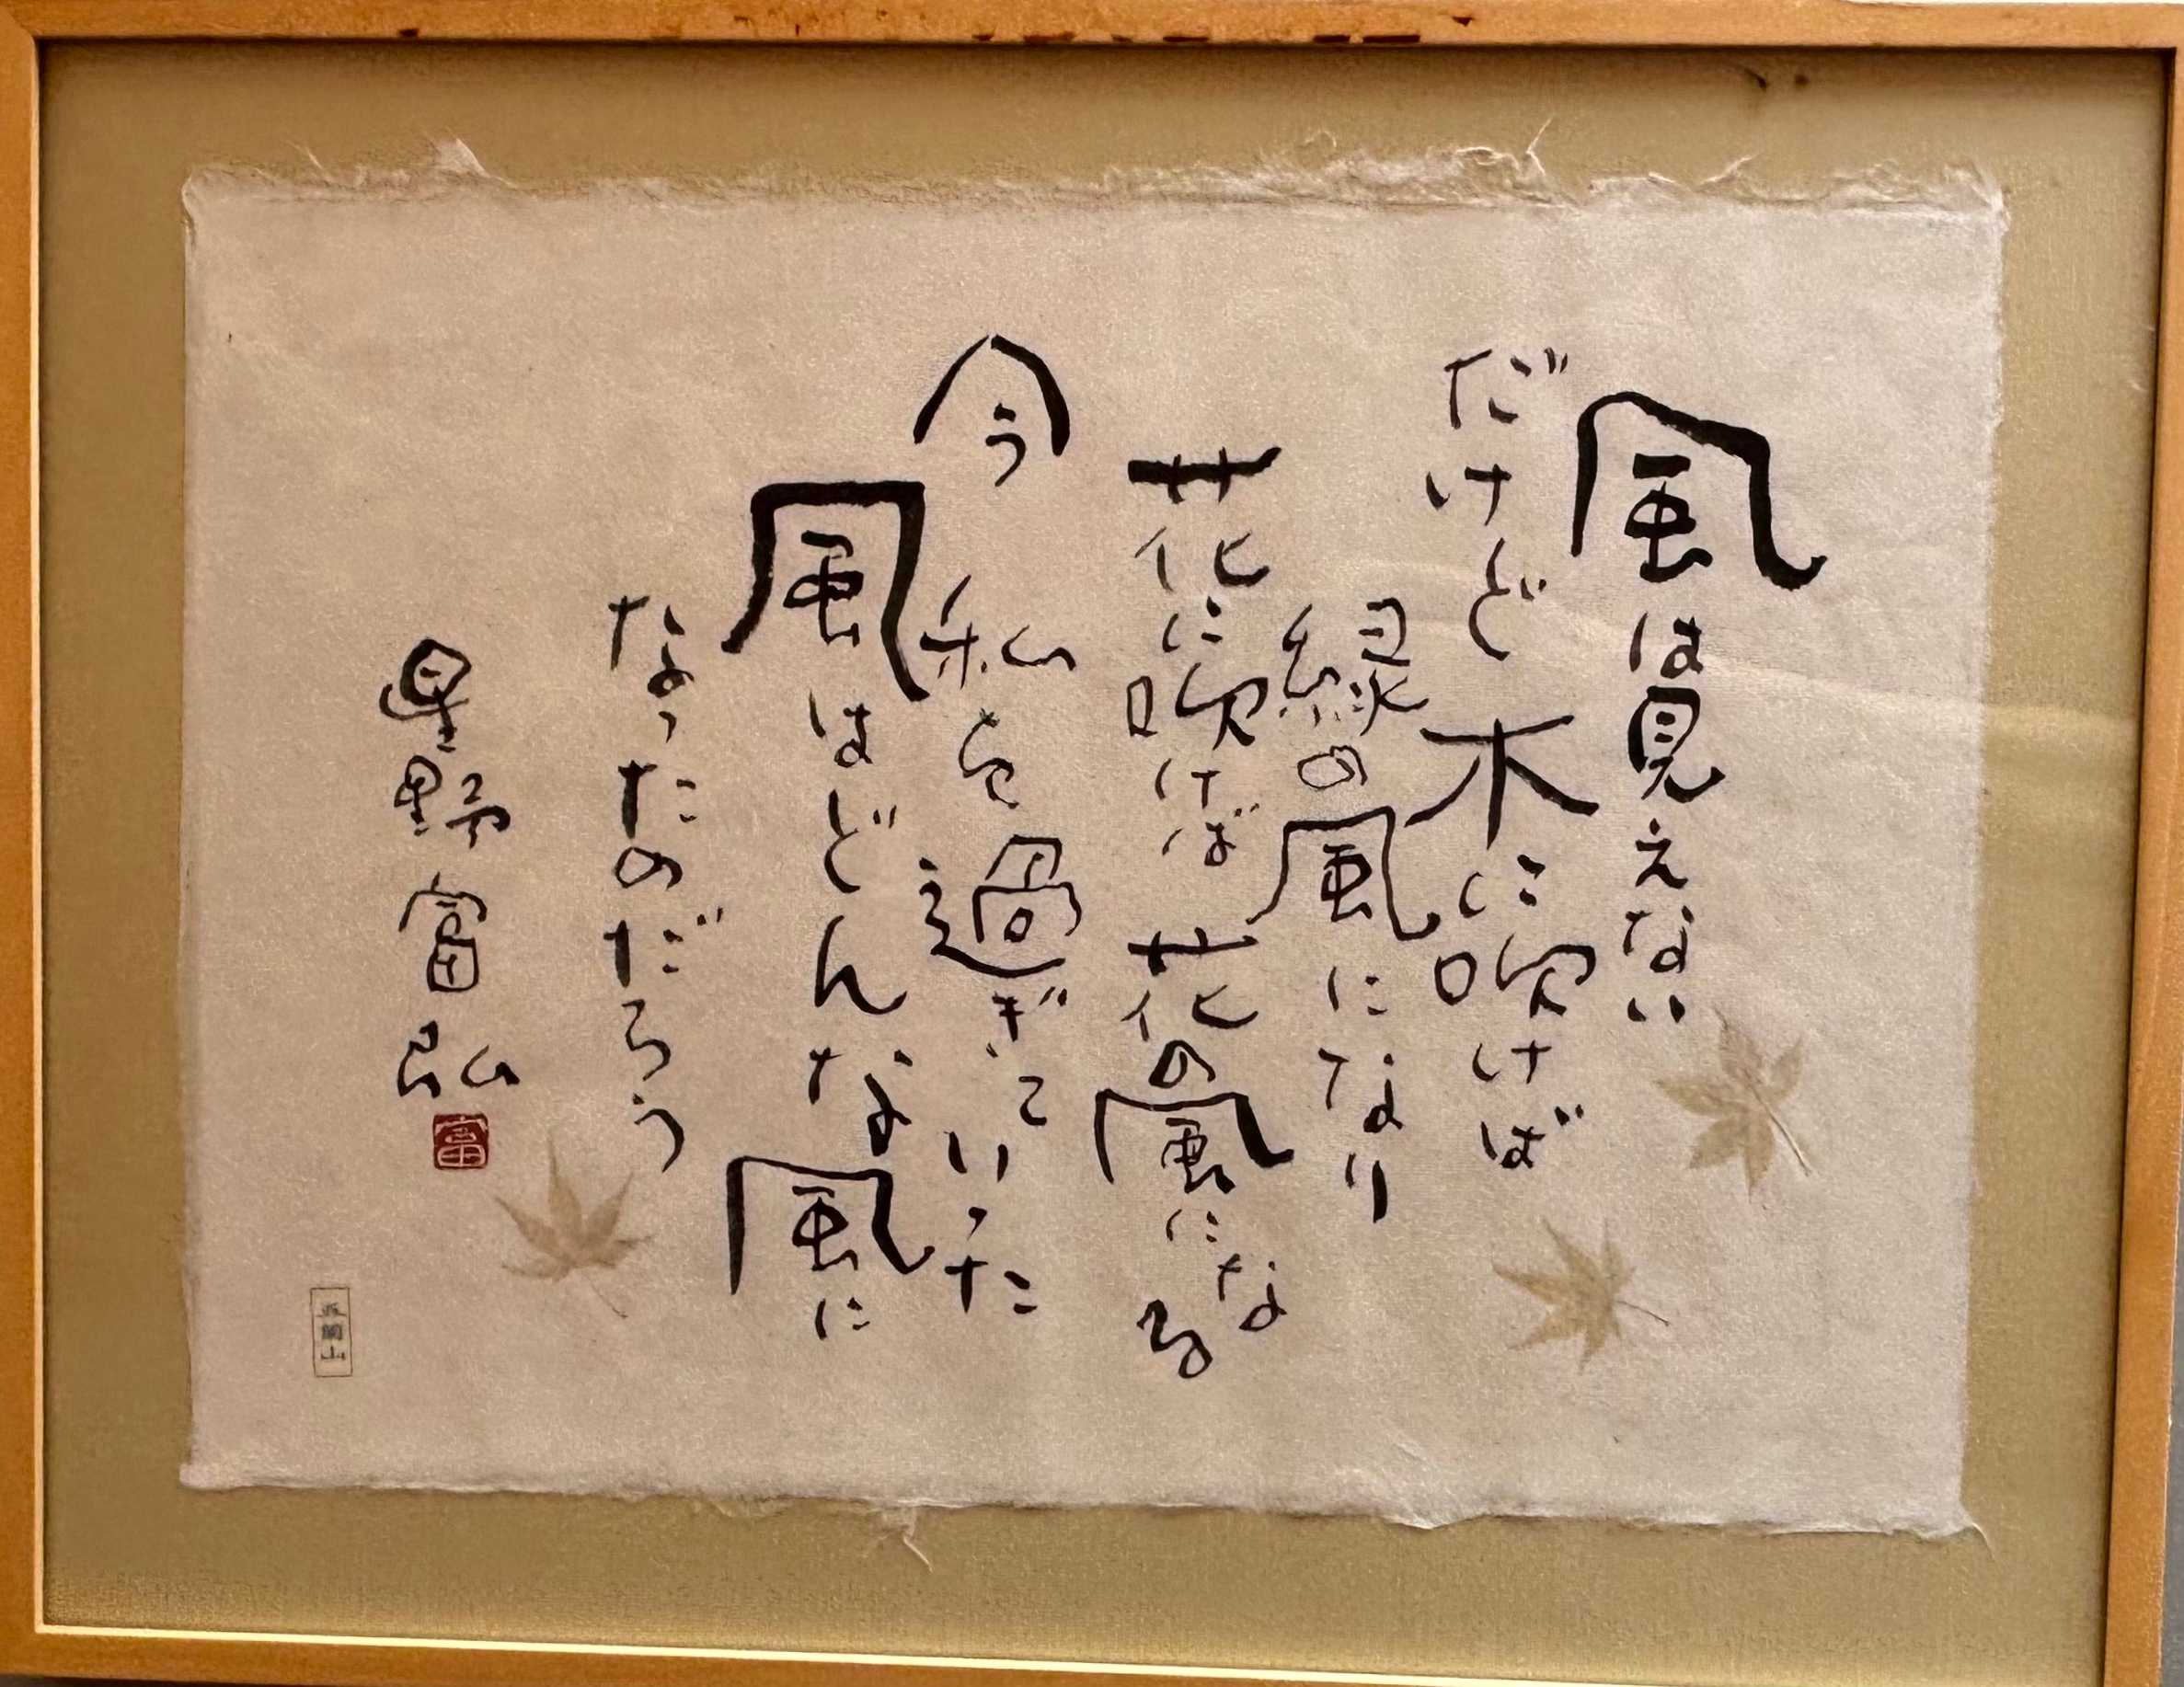 風は見えない
だけど木に吹けば
緑の風になり
花に吹けば花の風になる
今私を過ぎていった
風はどんな風に
なったのだろう
星野富弘
富